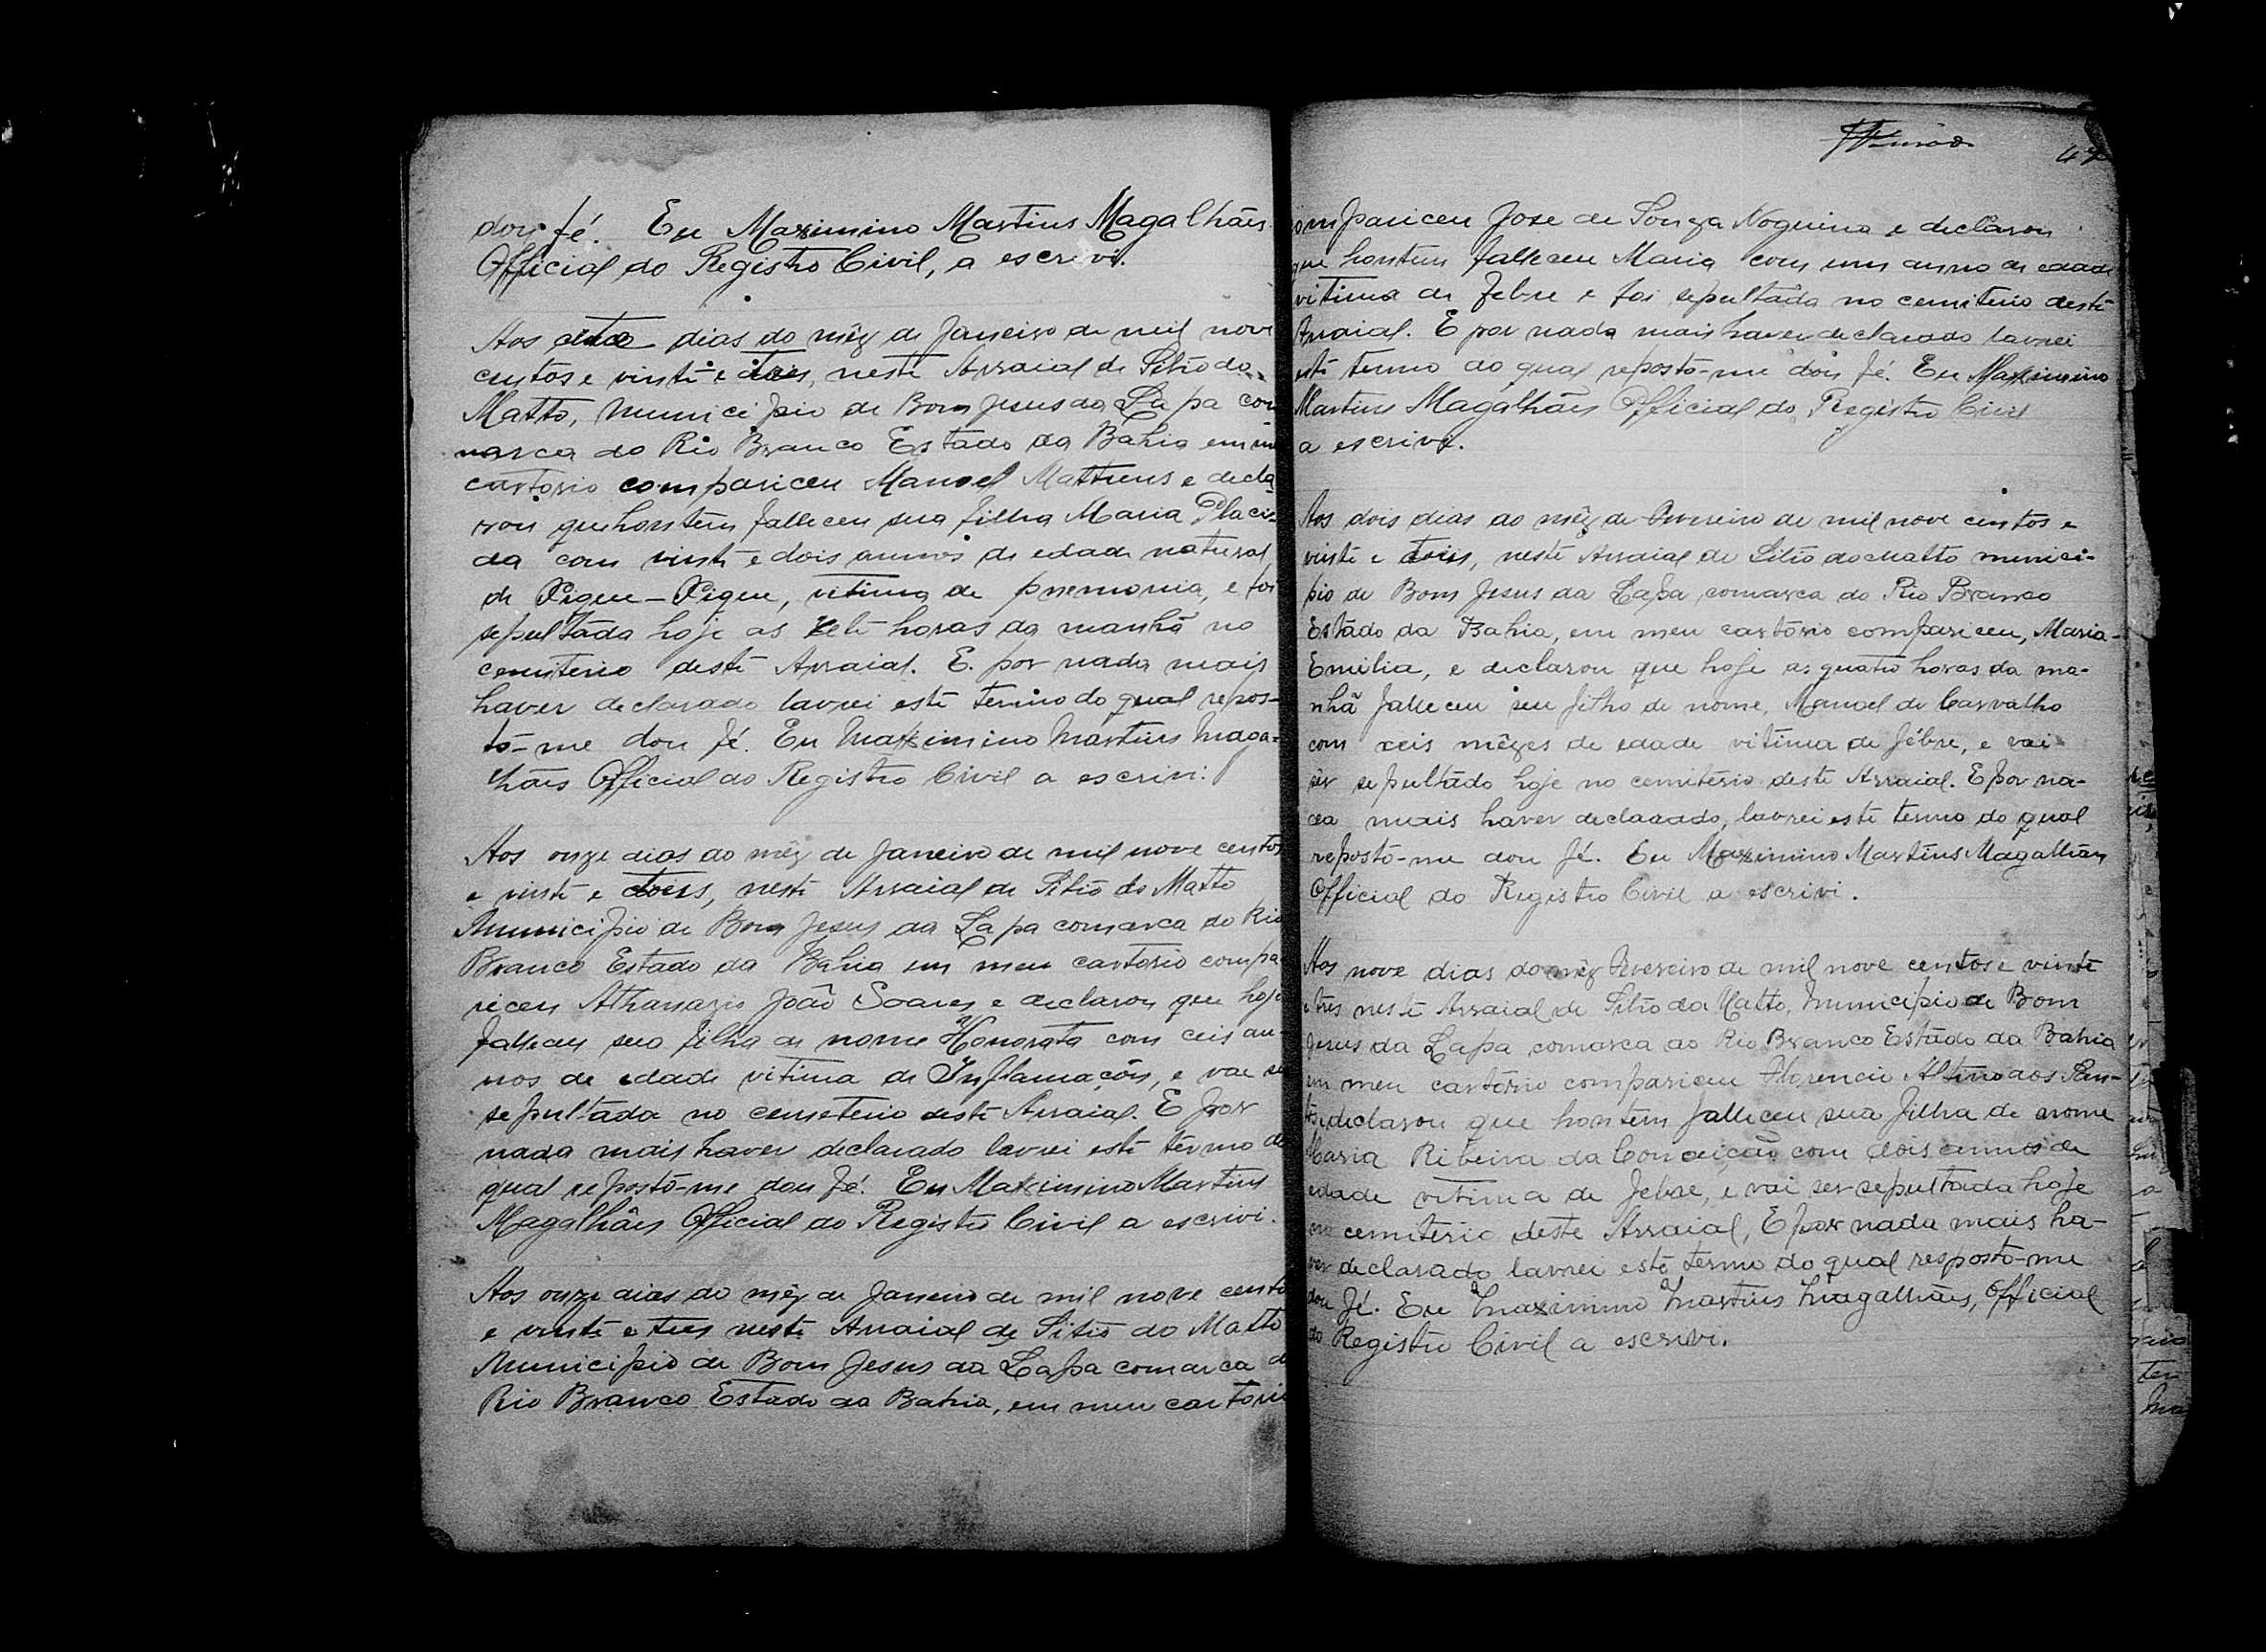 dou fé. Eu Maximino Martins Magalhães
Official do Registro Civil, a escrevi.
Aos oito dias do mêz de Janeiro de mil nove
centos e vinte e tres, neste Arraial de Sitio do
Matto, Municipio de Bom Jesus da Lapa co
marca do Rio Branco Estado da Bahia em m
cartorio compariceu Manoel Mattheus e decla
rou que hontem falleceu sua filha Maria Placi-
da com vinte e dois annos de edade natural
de Pique-Pique, vitima de pnemonia, e foi
sepultada hoje as sete horas da manhã no
cemiterio deste Arraial. E. por nada mais
haver declarado lavrei este termo do qual repos-
to-me dou fé. Eu Maximino Martins Maga-
lhães Official do Registro Civil a escrivi.
Aos onze dias do mêz de Janeiro de mil nove centos
e vinte e tres, neste Arraial de Sitio do Matto
Municipio de Bom Jesus da Lapa comarca do Rio
Branco Estado da Bahia em meu cartorio compa
riceu Athanazio João Soares e declarou que hoje
falleceu sua filha de nome Honorata com ceis an-
nos de edade vitima de Inflamação, e vae se
sepultada no cemeterio deste Arraial. E por
nada mais haver declarado lavrei este termo do
qual reposto-me dou fé. Eu Maximino Martins
Magalhães Official do Registro Civil a escrivi.
Aos onze dias do mêz de Janeiro de mil nove cento
e vinte e tres neste Arraial de Sitio do Matto
Municipio de Bom Jesus da Lapa comarca d
Rio Branco Estado da Bahia, em meu cartorio
47
ompariceu Jose de Souza Nogueira e declarou
que hontem falleceu Maria com um anno de edade
vitima de febre e foi sepultada no cemiterio deste
Arraial. E por nada mais haver declarado lavrei
este termo do qual reposto-me dou fé. Eu Maximino
Martins Magalhães Official do Registro Civil
a escrivi.
Aos dois dias do mêz de Fevereiro de mil nove centos e
vinte e tres, neste Arraial de Sitio do Matto munici-
pio de Bom Jesus da Lapa comarca do Rio Branco
Estado da Bahia, em meu cartório compariceu, Maria
Emilia, e declarou que hoje as quatro horas da ma-
nhã falleceu seu filho de nome, Manoel de Carvalho
com seis mêzes de edade vitima de fébre, e vai
ser sepultado hoje no cemitério deste Arraial. E por na-
da mais haver declarado, lavrei este termo do qual
reposto-me dou fé. Eu Maximino Martins Magalhães
Official do Registro Civil a escrivi.
Aos nove dias do mêz Fevereiro de mil nove centos e vinte
e tres neste Arraial de Sitio da Matto, Municipio de Bom
Jesus da Lapa comarca do Rio Branco Estado da Bahia
em meu cartório compariceu Florencio Altino dos San-
tos, declarou que hontem falleceu sua filha de nome
Maria Ribeira da Conceição com dois annos de
edade vitima de febre, e vai ser sepultada hoje
no cemitério deste Arraial, E por nada mais ha-
ver declarado lavrei este termo do qual resposto-me
dou fé. Eu Maximino Martins Magalhães, Official
do Registro Civil a escrevi.